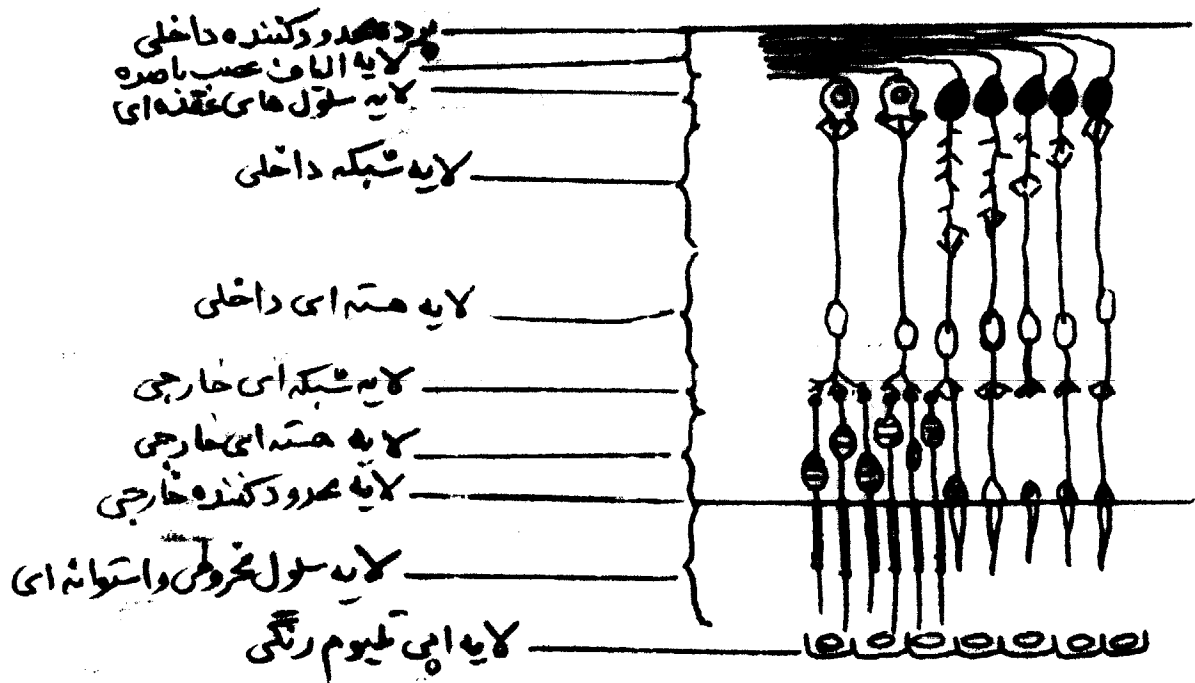 پرده محدودکننده داخلی
لایه الیاف عصب باصره
لایه سلول های عقده ای
لایه شبکه داخلی
لایه هسته ای داخلی
لایه شبکه ای خارجی
لایه هسته ای خارجی
لایه محدودکننده خارجی
لایه سلول مخروطی واستوانه ای
لایه اپی تلیوم رنگی